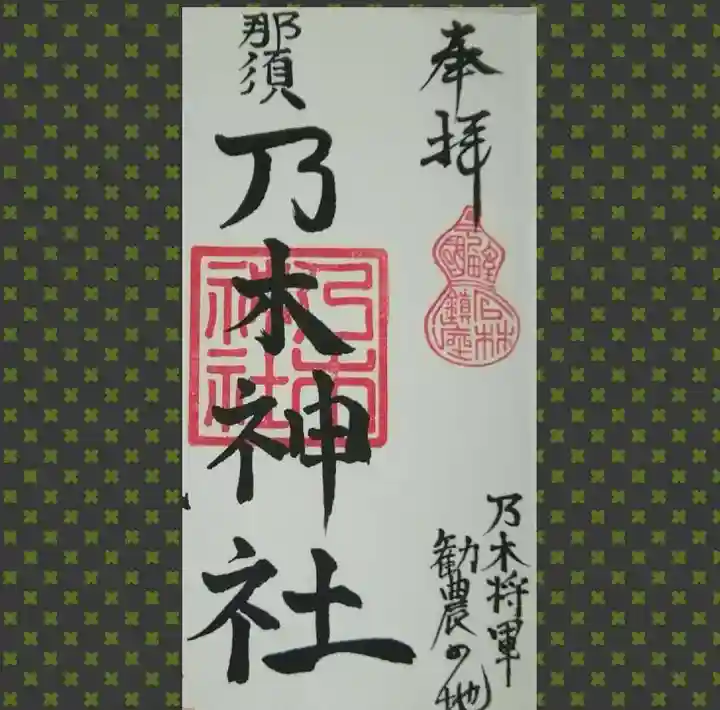 奉拝
乃木将軍
勧農の地
那須
乃木神社
乃木
神社
石林
鎮座